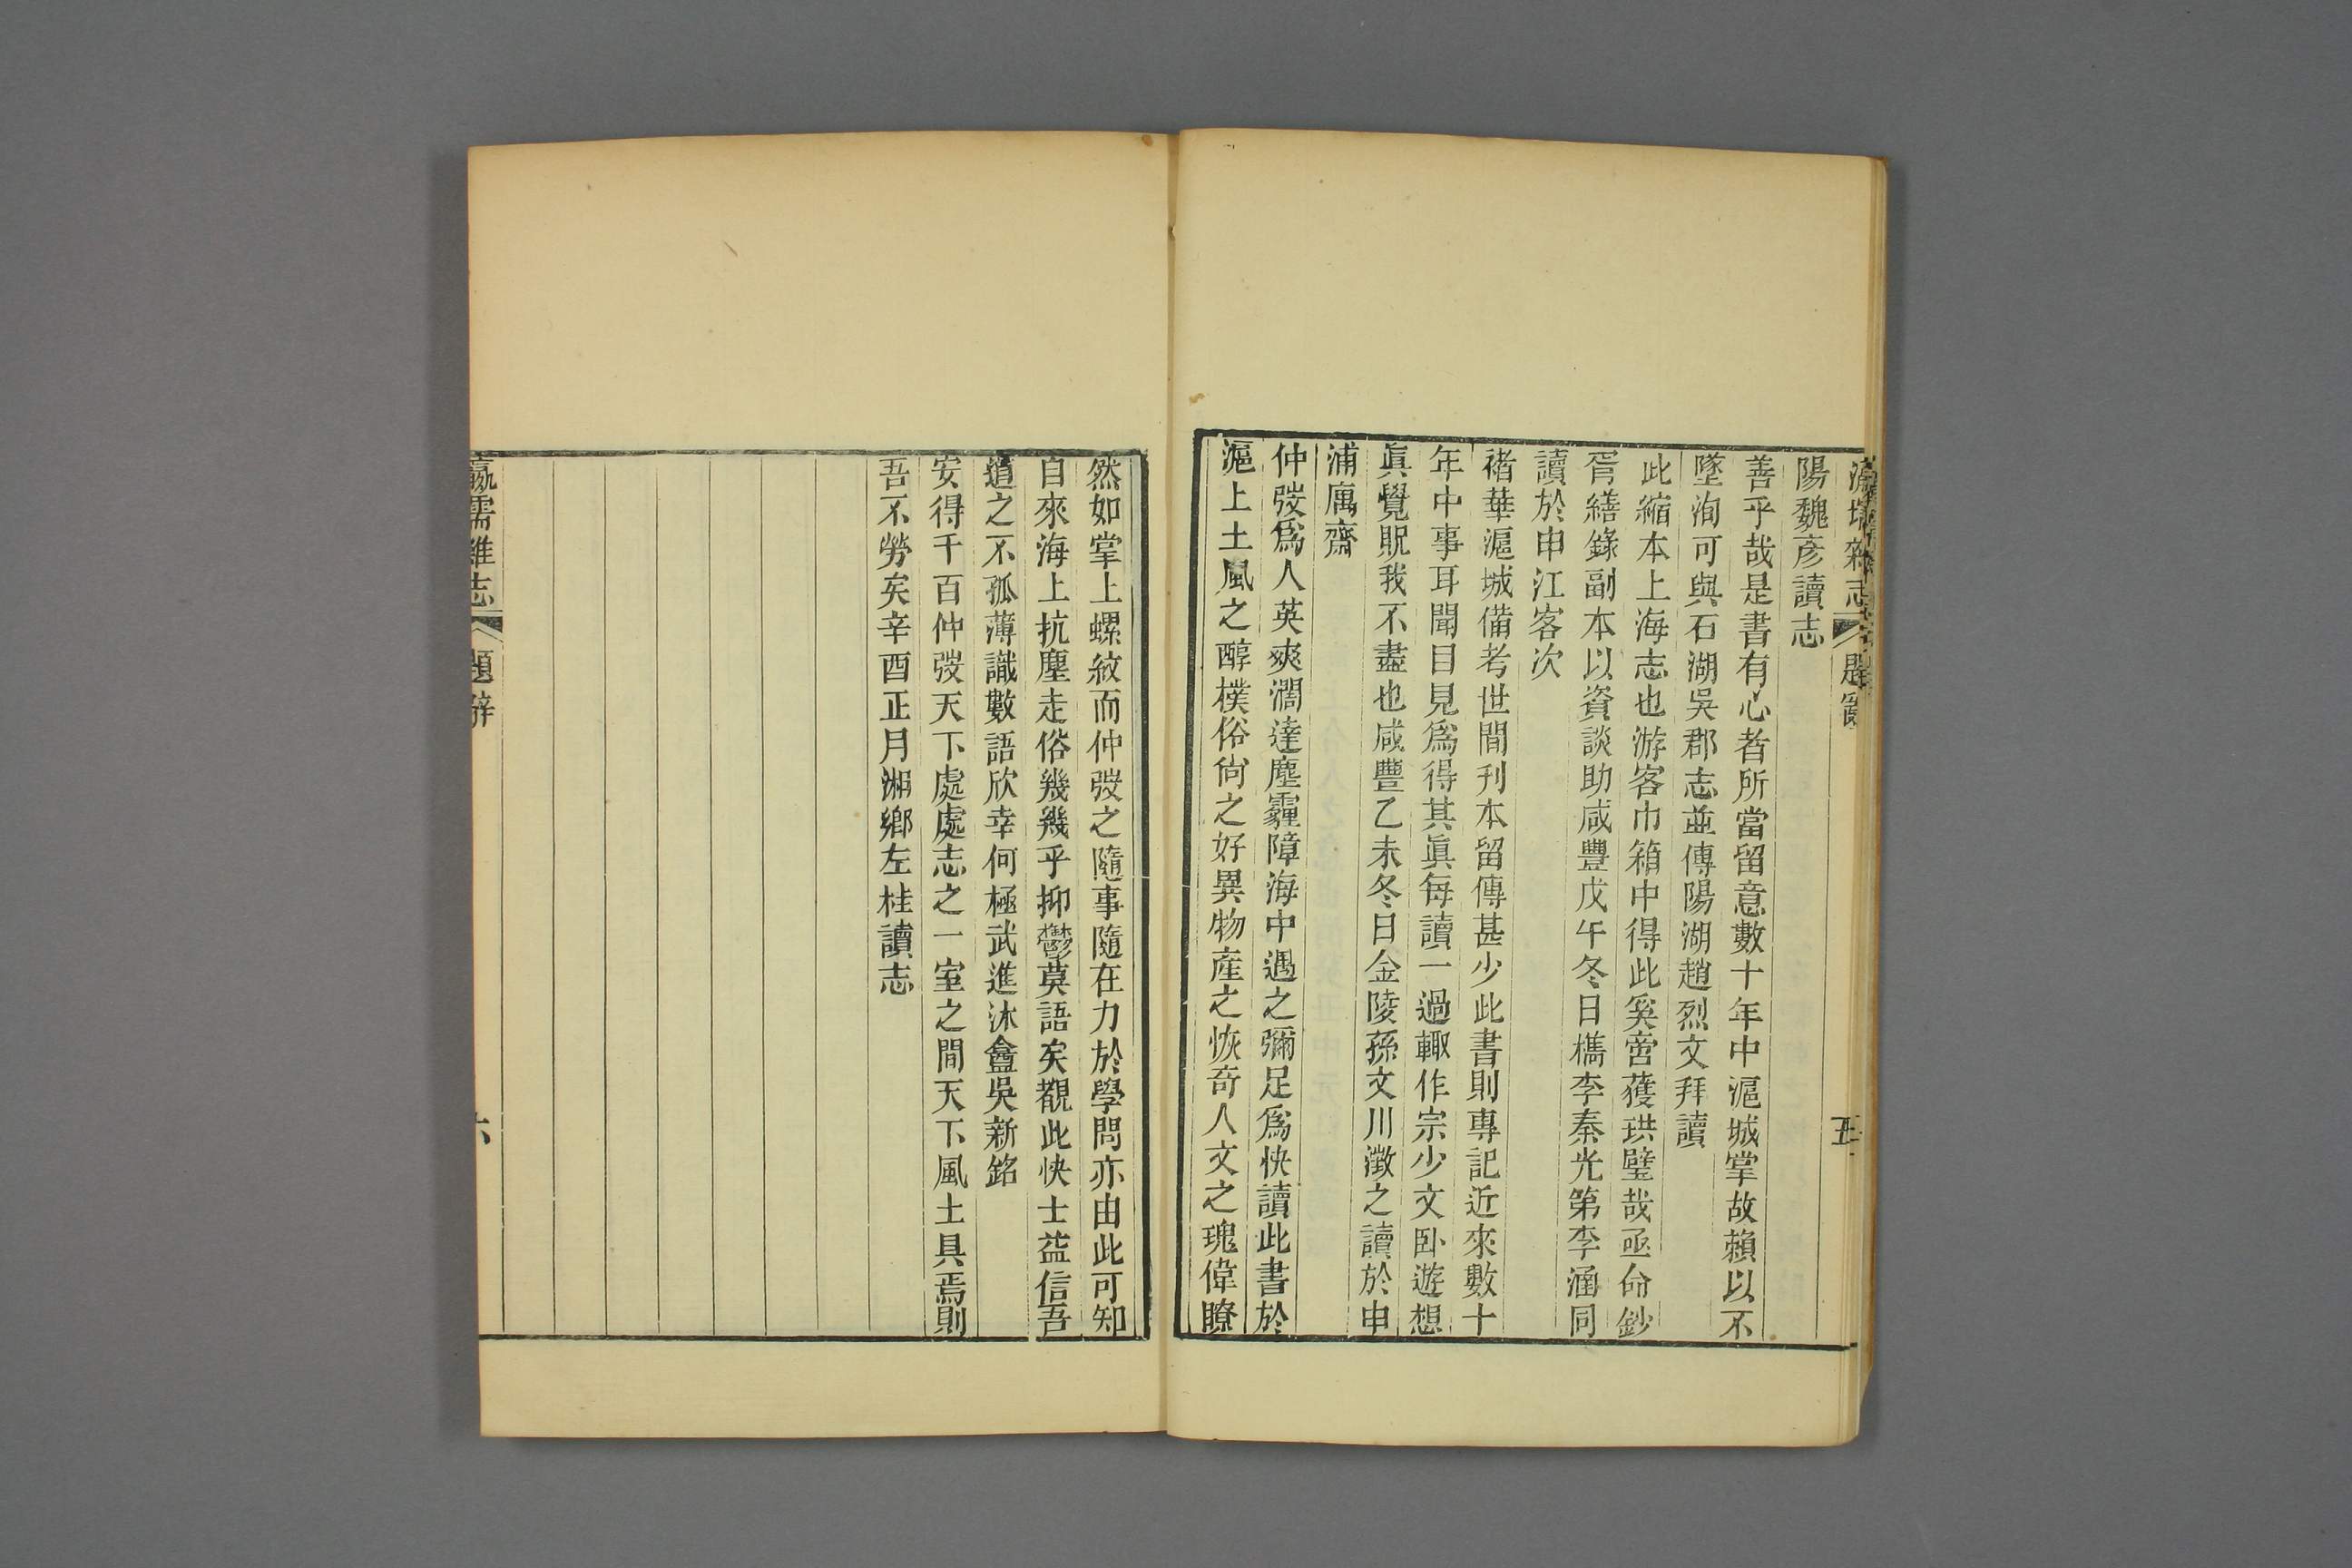 瀛壖雜志 題辭 五
陽魏彥讀志
善乎哉是書有心者所當留意數十年中滬城掌故賴以不
墜洵可與石湖吳郡志並傳陽湖趙烈文拜讀
此縮本上海志也游客巾箱中得此奚啻獲珙璧哉亟命鈔
胥繕錄副本以資談助咸豐戊午冬日檇李秦光第李涵同
讀於申江客次
褚華滬城備考世間刊本留傳甚少此書則專記近來數十
年中事耳聞目見爲得其眞每讀一過輙作宗少文臥遊想
眞覺貺我不盡也咸豐乙未冬日金陵孫文川澂之讀於申
浦寓齋
仲弢爲人英爽濶達塵霾障海中遇之彌足爲快讀此書於
滬上土風之醇樸俗尙之好異物產之恢奇人文之瑰偉瞭
然如掌上螺紋而仲弢之隨事隨在力於學問亦由此可知
自來海上抗塵走俗幾幾乎抑鬱莫語矣觀此快士益信吾
道之不孤薄識數語欣幸何極武進沐盦吳新銘
安得千百仲弢天下處處志之一室之間天下風土具焉則
吾不勞矣辛酉正月湘鄉左桂讀志
瀛壖雜志 題辭 六